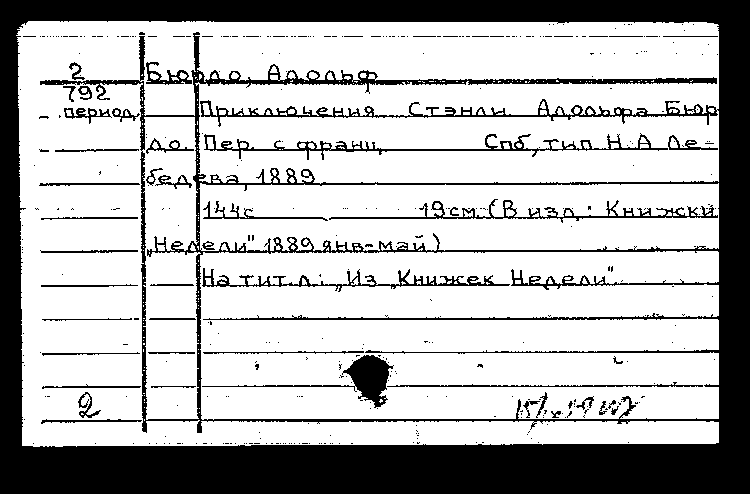 2 Бюрдо, Адольф
792
период. Приключения Стэнли Адольфа Бюр
до. Пер. с франц. Спб, тип Н.А Ле-
бедева, 1889
144с 19см. (В изд.: Книжки
„Недели" 1889 янв-май)
На тит.л.: „Из „Книжек Недели"
2